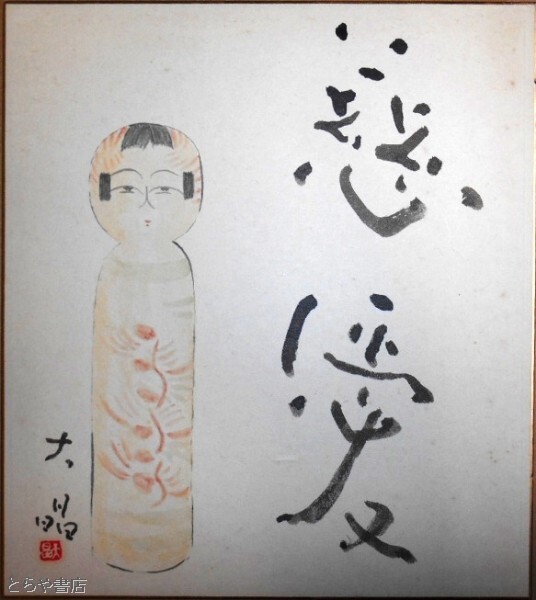 慈
愛
大
とらや書店